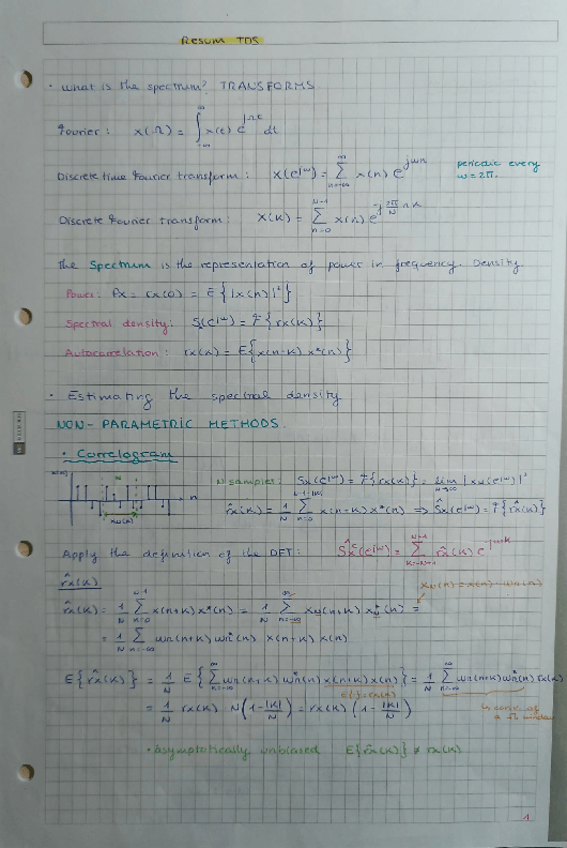 Resum TDS
· What is the spectrum? TRANSFORMS
Fourier: X(Ω) = ∫_{-∞}^{∞} x(t) e^{jΩt} dt
Discrete time Fourier transform: X(e^{jω}) = Σ_{n=-∞}^{∞} x(n) e^{jωn} periodic every
ω = 2π.
Discrete Fourier transform: X(k) = Σ_{n=0}^{N-1} x(n) e^{-j 2π/N nk}
The Spectrum is the representation of power in frequency. Density
Power: Px = rx(0) = E{|x(n)|²}
Spectral density: Sx(e^{jω}) = F{rx(k)}
Autocorrelation: rx(k) = E{x(n-k) x*(n)}
· Estimating the spectral density
NON-PARAMETRIC METHODS.
· Correlogram
N samples: Sx(e^{jω}) = F{rx(k)} = lim_{N→∞} |XN(e^{jω})|²
r̂x(k) = 1/N Σ_{n=0}^{N-1-|k|} x(n-k) x*(n) ⇒ Ŝx(e^{jω}) = F{r̂x(k)}
N
n
xN(n)
Apply the definition of the DFT: Ŝxᶜ(e^{jω}) = Σ_{k=-N+1}^{N-1} r̂x(k) e^{-jωk}
r̂x(k)
xN(n) = x(n) · wn(n)
r̂x(k) = 1/N Σ_{n=0}^{N-1} x(n+k) x*(n) = 1/N Σ_{n=-∞}^{∞} xN(n+k) xN*(n) =
= 1/N Σ_{n=-∞}^{∞} wn(n+k) wn*(n) x(n+k) x(n)
E{r̂x(k)} = 1/N E{Σ_{n=-∞}^{∞} wn(n+k) wn*(n) x(n+k) x(n)} = 1/N Σ_{n=-∞}^{∞} wn(n+k) wn*(n) rx(k)
E{·} = rx(k)
= 1/N rx(k) N(1 - |k|/N) = rx(k) (1 - |k|/N)
↳ conv. of
a Π window
· Asymptotically unbiased E{r̂x(k)} ≠ rx(k)
1